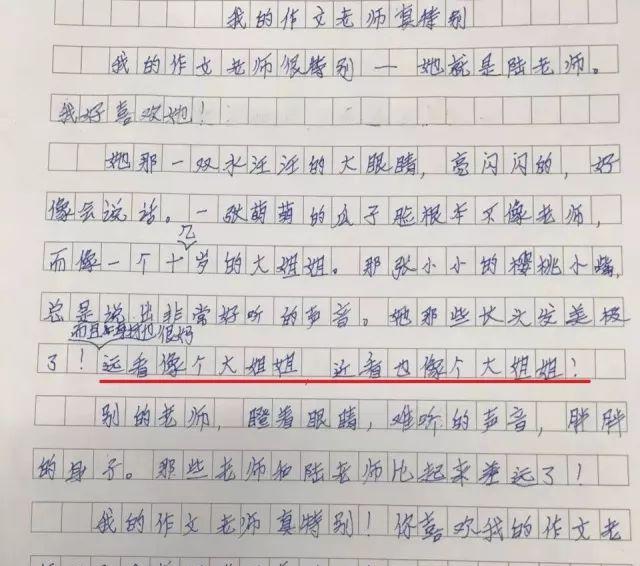 我的作文老师真特别
我的作文老师很特别—她就是陆老师。
我好喜欢她！
她那一双水汪汪的大眼睛，亮闪闪的，好
像会说话。一张萌萌的瓜子脸根本不像老师，
几
而像一个十岁的大姐姐。那张小小的樱桃小嘴，
总是说出非常好听的声音。她那些长头发美极
而且身材也很好
了！远看像个大姐姐，近看也像个大姐姐！
别的老师，瞪着眼睛，难听的声音，胖胖
的身子。那些老师和陆老师比起来差远了！
我的作文老师真特别！你喜欢我的作文老